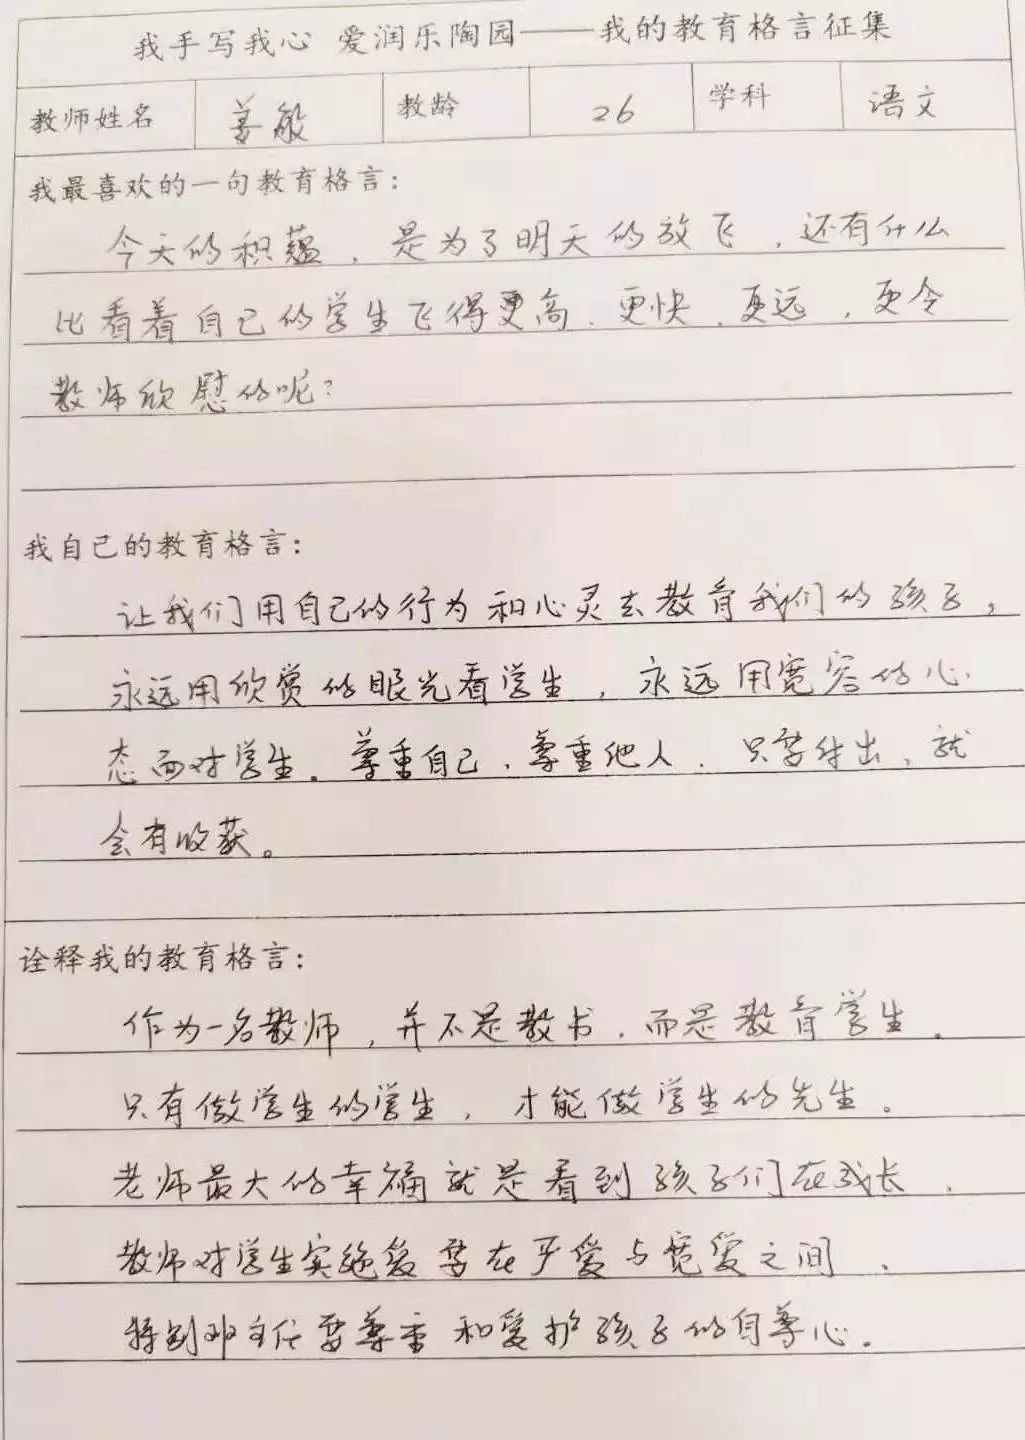 我手写我心 爱润乐陶园——我的教育格言征集
教师姓名 姜敏 教龄 26 学科 语文
我最喜欢的一句教育格言：
今天的积蕴，是为了明天的放飞，还有什么
比看着自己的学生飞得更高、更快、更远，更令
教师欣慰的呢？
我自己的教育格言：
让我们用自己的行为和心灵去教育我们的孩子，
永远用欣赏的眼光看学生，永远用宽容的心
态面对学生。尊重自己、尊重他人、只要付出、就
会有收获。
诠释我的教育格言：
作为一名教师，并不是教书、而是教育学生。
只有做学生的学生，才能做学生的先生。
老师最大的幸福就是看到孩子们在成长、
教师对学生实施爱要在严爱与宽爱之间、
特别班主任要尊重和爱护孩子的自尊心。